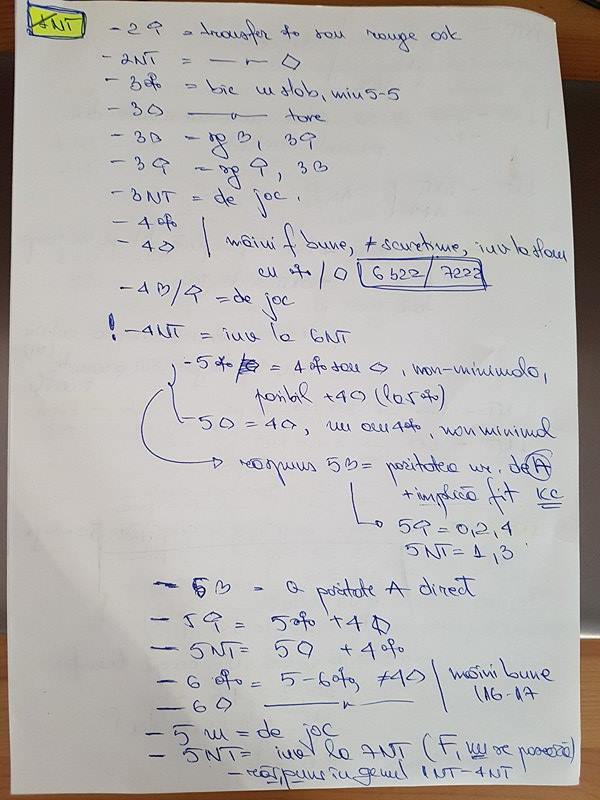 1NT
- 2♠ = transfer ♣ sau range ask
- 2NT = —"— ♦
- 3♣ = bic m slob, min 5-5
- 3♦ —"— tare
- 3♥ = sg ♥, 3♠
- 3♠ = sg ♠, 3♥
- 3NT = de joc.
- 4♣
- 4♦ | mâini f bune, ≠ scurtime, inv la slam
cu ♣/♦ 6322/7222
- 4♥/♠ = de joc
! - 4NT = inv la 6NT
- 5♣ = 4♣ sau ♦, non-minimală,
posibil +4♦ (la 5♣)
- 5♦ = 4♦, nu am 4♣, nonminimal
→ răspuns 5♥ = paritatea nr. de A
+ implică fit KC
5♠ = 0,2,4
5NT = 1,3
- 5♥ = paritate A direct
- 5♠ = 5♣ + 4♦
- 5NT = 5♦ + 4♣
- 6♣ = 5-6♣, ≠4♦ | mâini bune
- 6♦ —"— (16-17
- 5m = de joc
- 5NT = inv la 7NT (F, nu se pasează)
- răspuns în genul 1NT-4NT